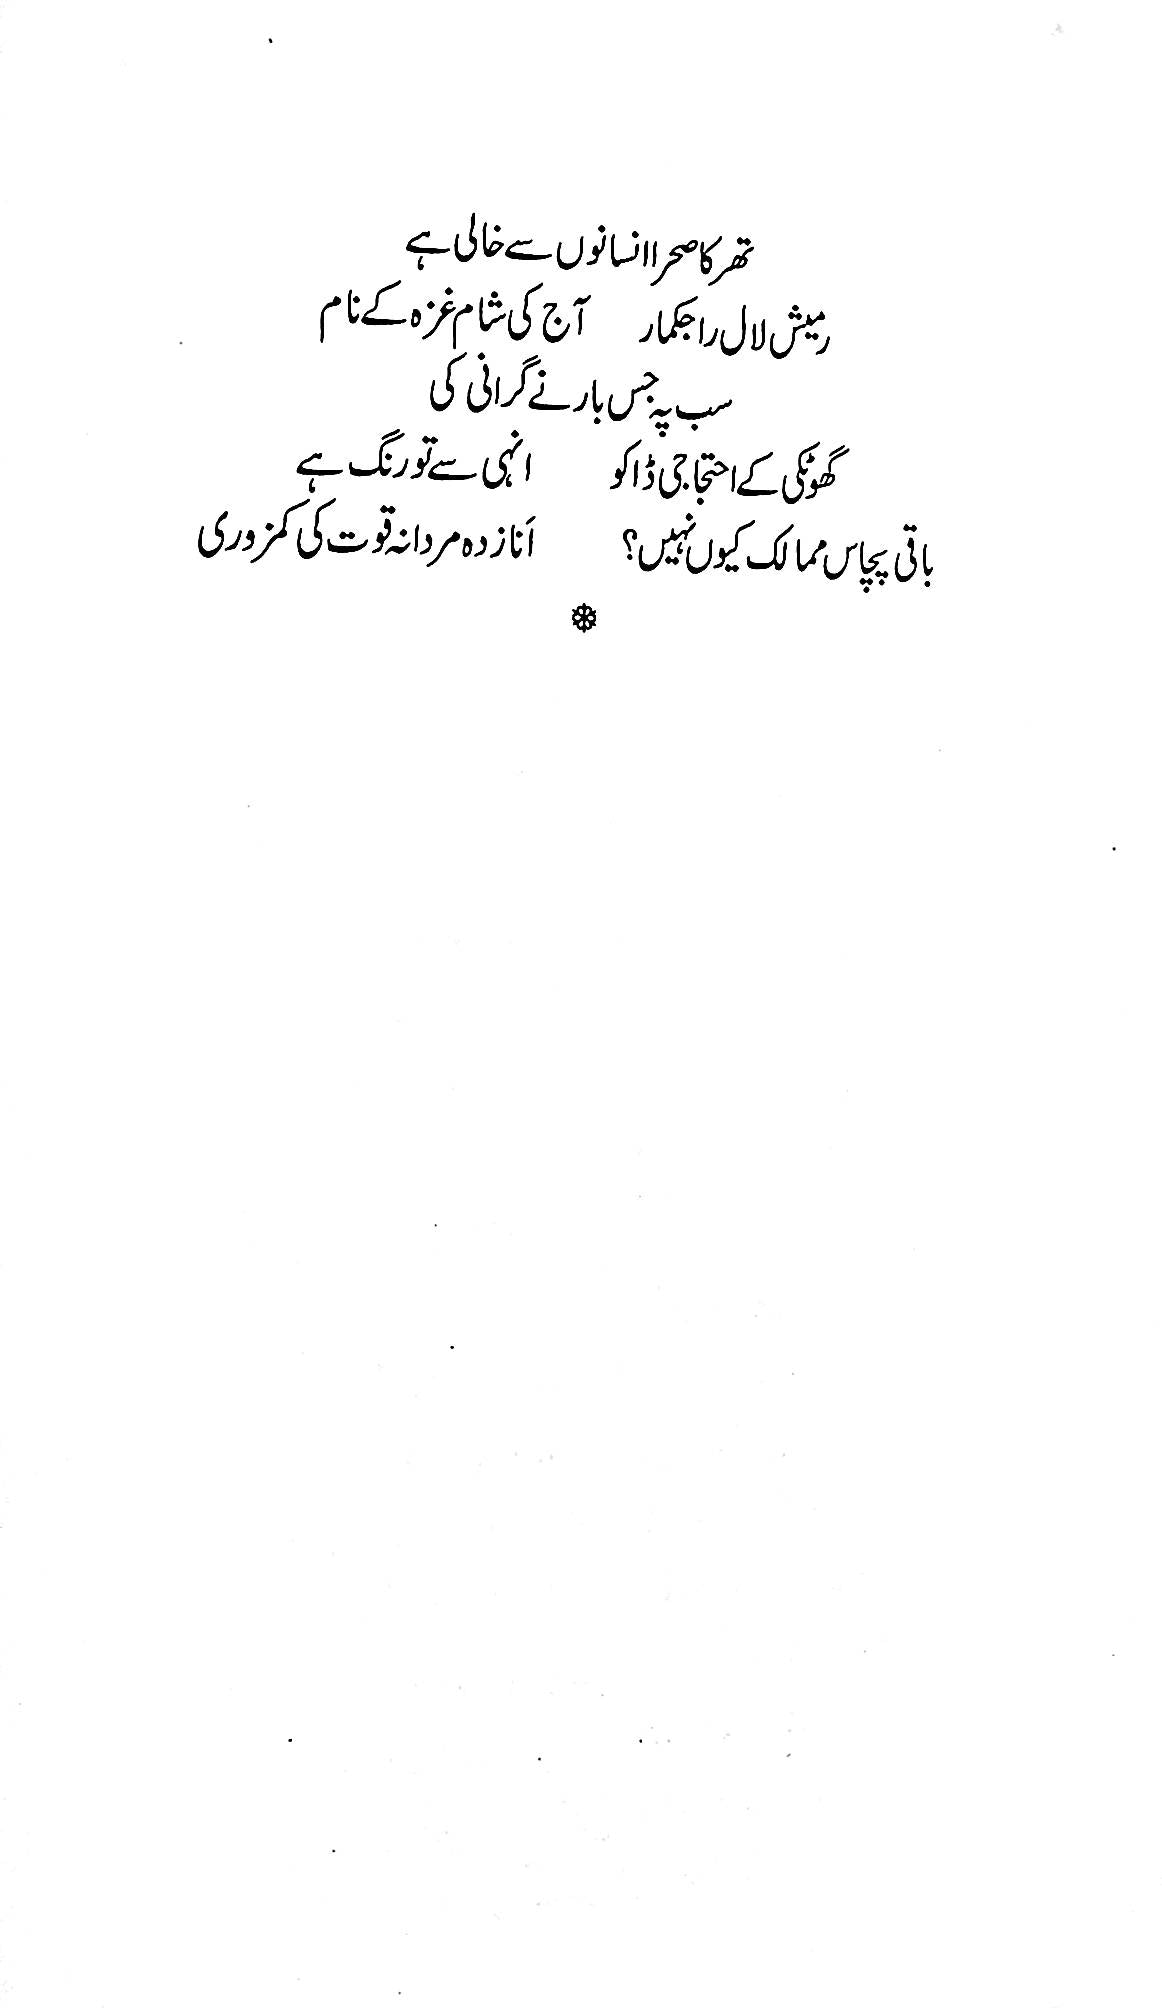 تھر کا صحرا انسانوں سے خالی ہے
رمیش لال راجکمار آج کی شام غزہ کے نام
سب پہ جس بار نے گرانی کی
گھوٹکی کے احتجاجی ڈاکو انہی سے تو رنگ ہے
باقی پچاس ممالک کیوں نہیں؟ اَنا زدہ مردانہ قوت کی کمزوری